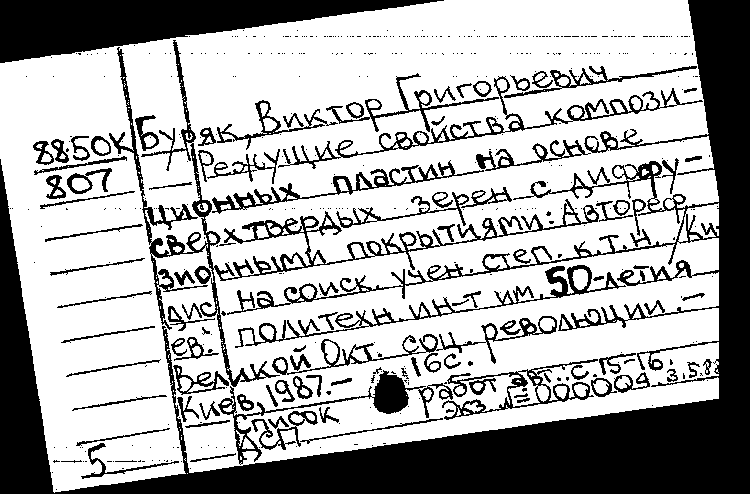 8850К Буряк, Виктор Григорьевич
807 Режущие свойства компози-
ционных пластин на основе
сверхтвердых зерен с диффу-
зионными покрытиями: Автореф.
дис. на соиск. учен. степ. к.т.н. / Ки-
ев. политехн. ин-т им. 50-летия
Великой Окт. соц. революции. –
Киев, 1987. – 16с.
Список работ авт.: с. 15-16.
ДСП. Экз. № 000004. 3.5.88
5